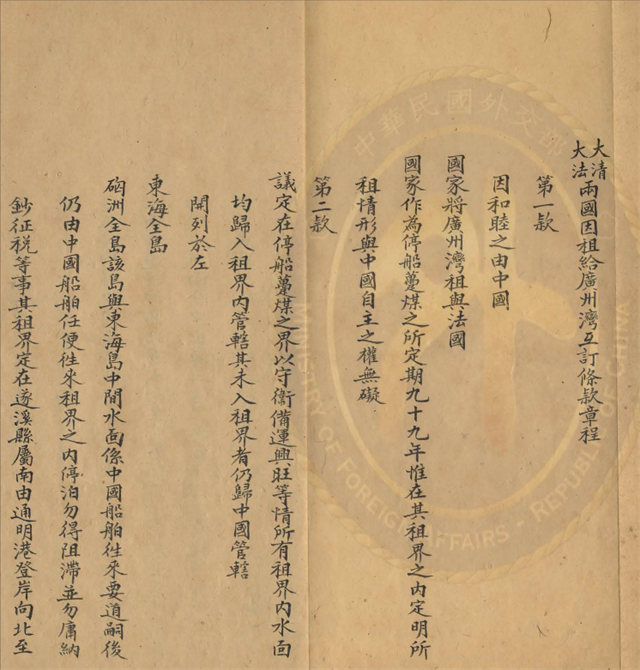 大清
大法
兩國因租給廣州灣互訂條款章程
第一款
因和睦之由中國
國家將廣州灣租與法國
國家作為停船躉煤之所定期九十九年惟在其租界之內定明所
租情形與中國自主之權無礙
第二款
議定在停船躉煤之界以守衛備運興旺等情所有租界內水面
均歸入租界內管轄其未入租界者仍歸中國管轄
開列於左
東海全島
硇洲全島該島與東海島中間水面係中國船舶往來要道嗣後
仍由中國船舶任便往來租界之內停泊勿得阻滯並勿庸納
鈔征稅等事其租界定在遂溪縣屬南由通明港登岸向北至
中華民國外交部
MINISTRY OF FOREIGN AFFAIRS REPUBLIC OF CHINA